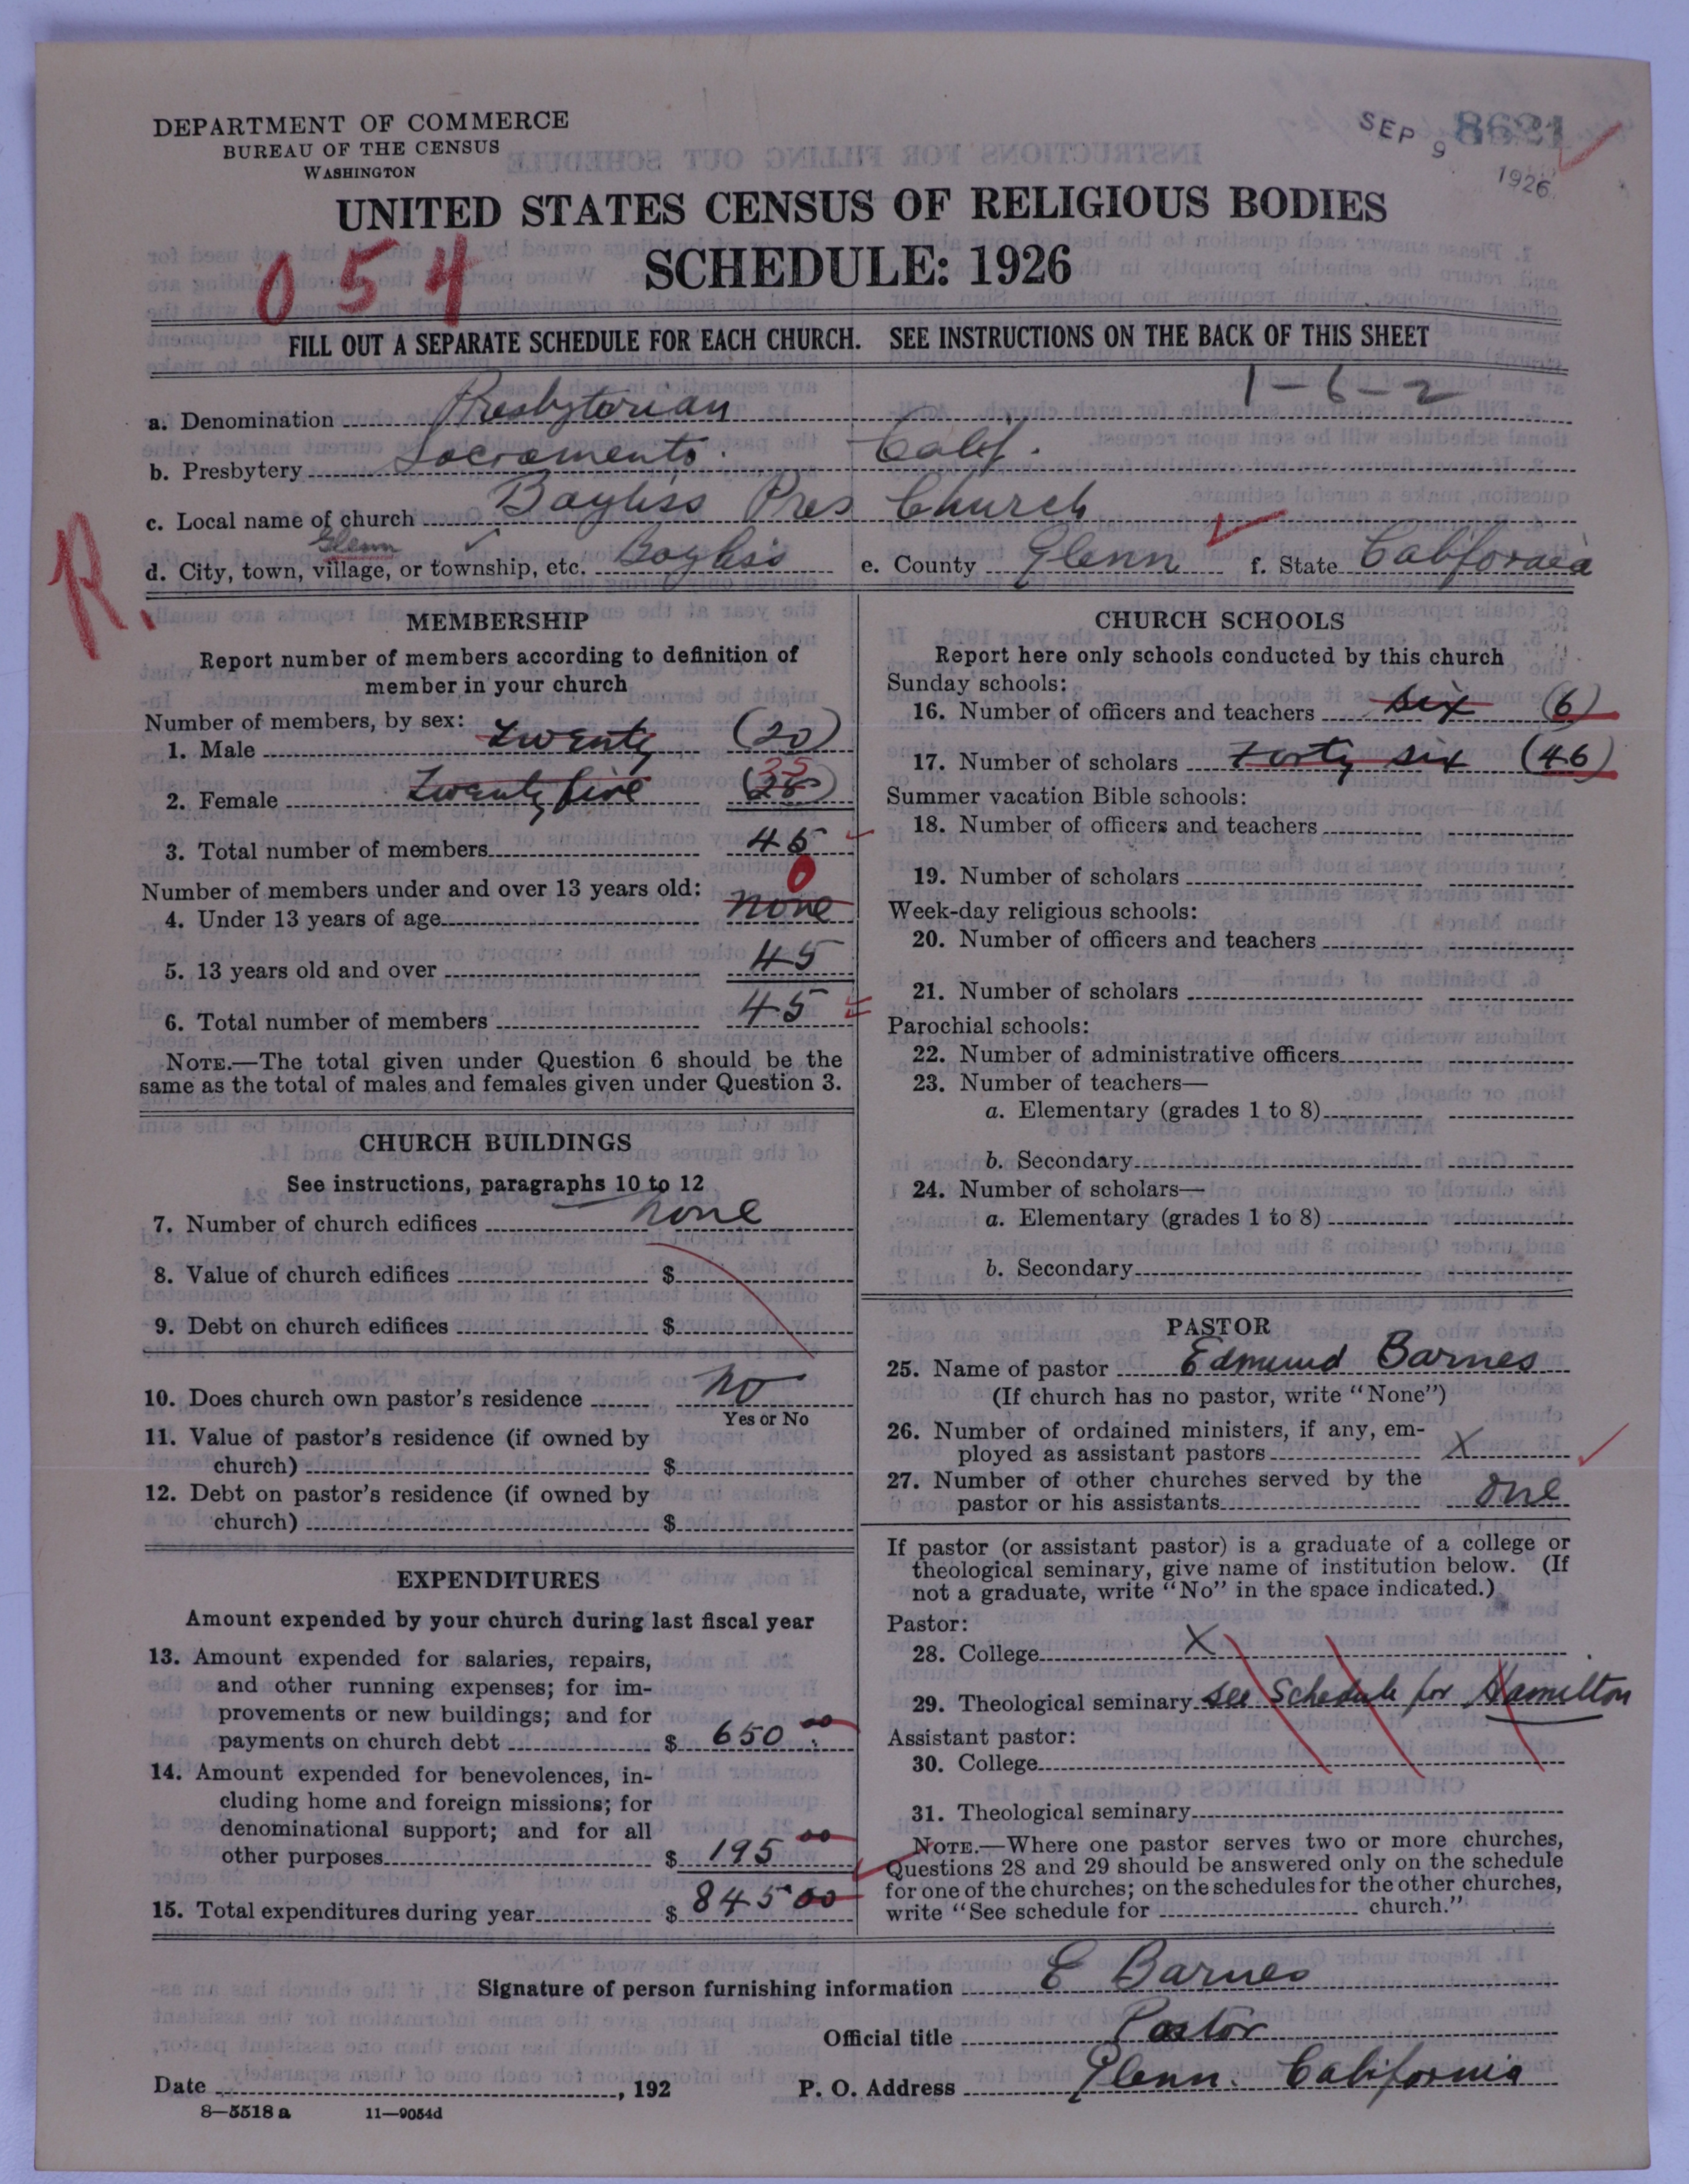 DEPARTMENT OF COMMERCE
BUREAU OF THE CENSUS
WASHINGTON
SEP 9 1926
8621
UNITED STATES CENSUS OF RELIGIOUS BODIES
SCHEDULE: 1926
054
FILL OUT A SEPARATE SCHEDULE FOR EACH CHURCH. SEE INSTRUCTIONS ON THE BACK OF THIS SHEET
1-6-2
a. Denomination Presbyterian
b. Presbytery Sacramento. Calif.
c. Local name of church Bayliss Pres Church
Glenn
d. City, town, village, or township, etc. Bayliss e. County Glenn f. State California
R.
MEMBERSHIP
Report number of members according to definition of
member in your church
Number of members, by sex:
1. Male twenty (20)
2. Female twenty five (25)
3. Total number of members 45
Number of members under and over 13 years old:
0
4. Under 13 years of age none
5. 13 years old and over 45
6. Total number of members 45
NOTE.—The total given under Question 6 should be the
same as the total of males and females given under Question 3.
CHURCH BUILDINGS
See instructions, paragraphs 10 to 12
7. Number of church edifices none
8. Value of church edifices $
9. Debt on church edifices $
10. Does church own pastor's residence no
Yes or No
11. Value of pastor's residence (if owned by
church) $
12. Debt on pastor's residence (if owned by
church) $
EXPENDITURES
Amount expended by your church during last fiscal year
13. Amount expended for salaries, repairs,
and other running expenses; for im-
provements or new buildings; and for
payments on church debt $ 650.00
14. Amount expended for benevolences, in-
cluding home and foreign missions; for
denominational support; and for all
other purposes $ 195 00
15. Total expenditures during year $ 845 00
CHURCH SCHOOLS
Report here only schools conducted by this church
Sunday schools:
16. Number of officers and teachers six (6)
17. Number of scholars Forty six (46)
Summer vacation Bible schools:
18. Number of officers and teachers
19. Number of scholars
Week-day religious schools:
20. Number of officers and teachers
21. Number of scholars
Parochial schools:
22. Number of administrative officers
23. Number of teachers—
a. Elementary (grades 1 to 8)
b. Secondary
24. Number of scholars—
a. Elementary (grades 1 to 8)
b. Secondary
PASTOR
25. Name of pastor Edmund Barnes
(If church has no pastor, write "None")
26. Number of ordained ministers, if any, em-
ployed as assistant pastors X
27. Number of other churches served by the
pastor or his assistants one
If pastor (or assistant pastor) is a graduate of a college or
theological seminary, give name of institution below. (If
not a graduate, write "No" in the space indicated.)
Pastor:
28. College X
29. Theological seminary see Schedule for Hamilton
Assistant pastor:
30. College
31. Theological seminary
NOTE.—Where one pastor serves two or more churches,
Questions 28 and 29 should be answered only on the schedule
for one of the churches; on the schedules for the other churches,
write "See schedule for church."
Signature of person furnishing information E Barnes
Official title Pastor
Date , 192 P. O. Address Glenn. California
8—5518 a 11—9054d